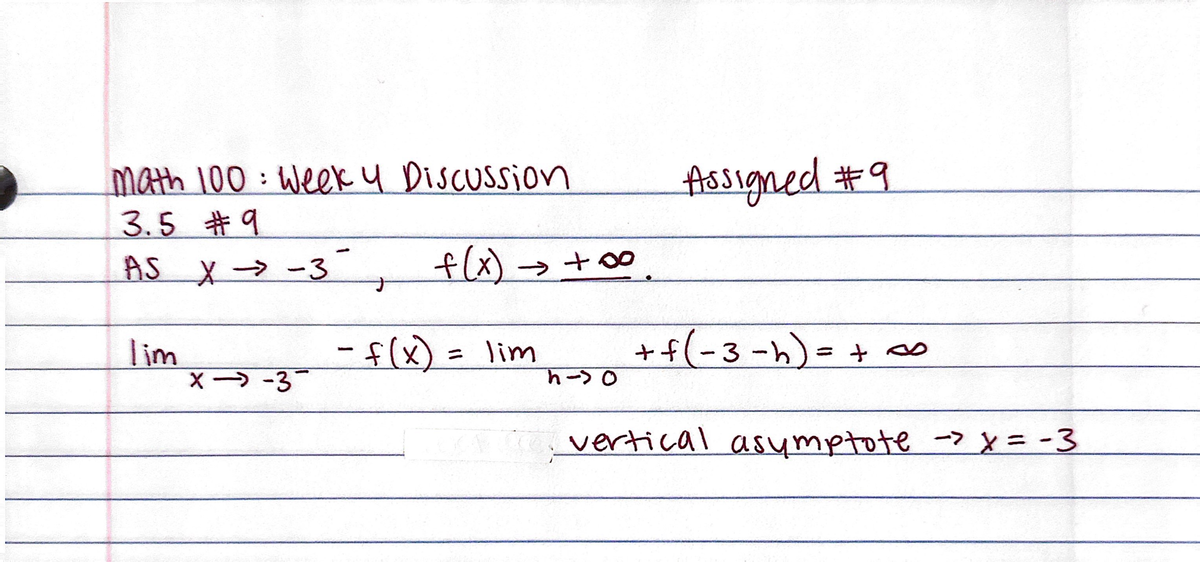 Math 100 : Week 4 Discussion Assigned #9
3.5 #9
AS x → -3⁻, f(x) → +∞.
lim x → -3⁻ - f(x) = lim h → 0 + f(-3 -h) = + ∞
vertical asymptote → x = -3